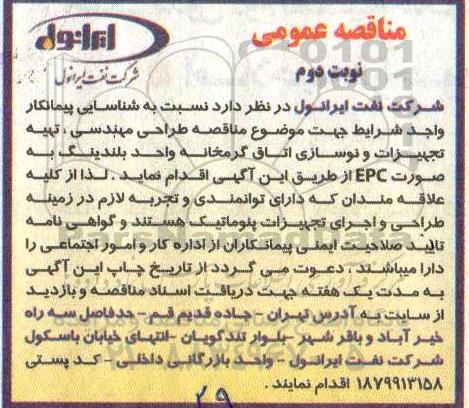 مناقصه عمومی
ایرانول
نوبت دوم
شرکت نفت ایرانول
شرکت نفت ایرانول در نظر دارد نسبت به شناسایی پیمانکار
واجد شرایط جهت موضوع مناقصه طراحی مهندسی ، تهیه
تجهیزات و نوسازی اتاق گرمخانه واحد بلندینگ به
صورت EPC از طریق این آگهی اقدام نماید . لذا از کلیه
علاقه مندان که دارای توانمندی و تجربه لازم در زمینه
طراحی و اجرای تجهیزات پلوماتیک هستند و گواهی نامه
تایید صلاحیت ایمنی پیمانکاران از اداره کار و امور اجتماعی را
دارا میباشند ، دعوت می گردد از تاریخ چاپ این آگهی
به مدت یک هفته جهت دریافت اسناد مناقصه و بازدید
از سایت به آدرس تهران - جاده قدیم قم - حدفاصل سه راه
خیر آباد و باقر شهر - بلوار تندگویان - انتهای خیابان باسکول
شرکت نفت ایرانول - واحد بازرگانی داخلی - کد پستی
۱۸۷۹۹۱۳۱۵۸ اقدام نمایند .
۲۹